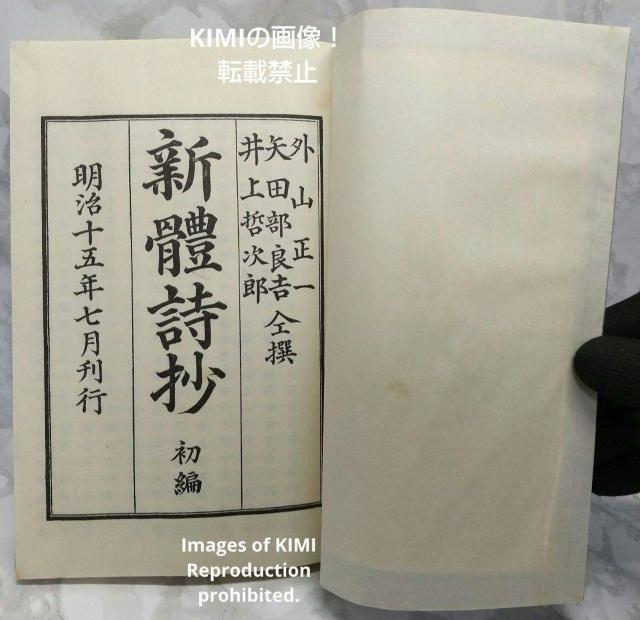 KIMIの画像！
転載禁止
外山正一
矢田部良吉 仝撰
井上哲次郎
新體詩抄 初編
明治十五年七月刊行
Images of KIMI
Reproduction
prohibited.